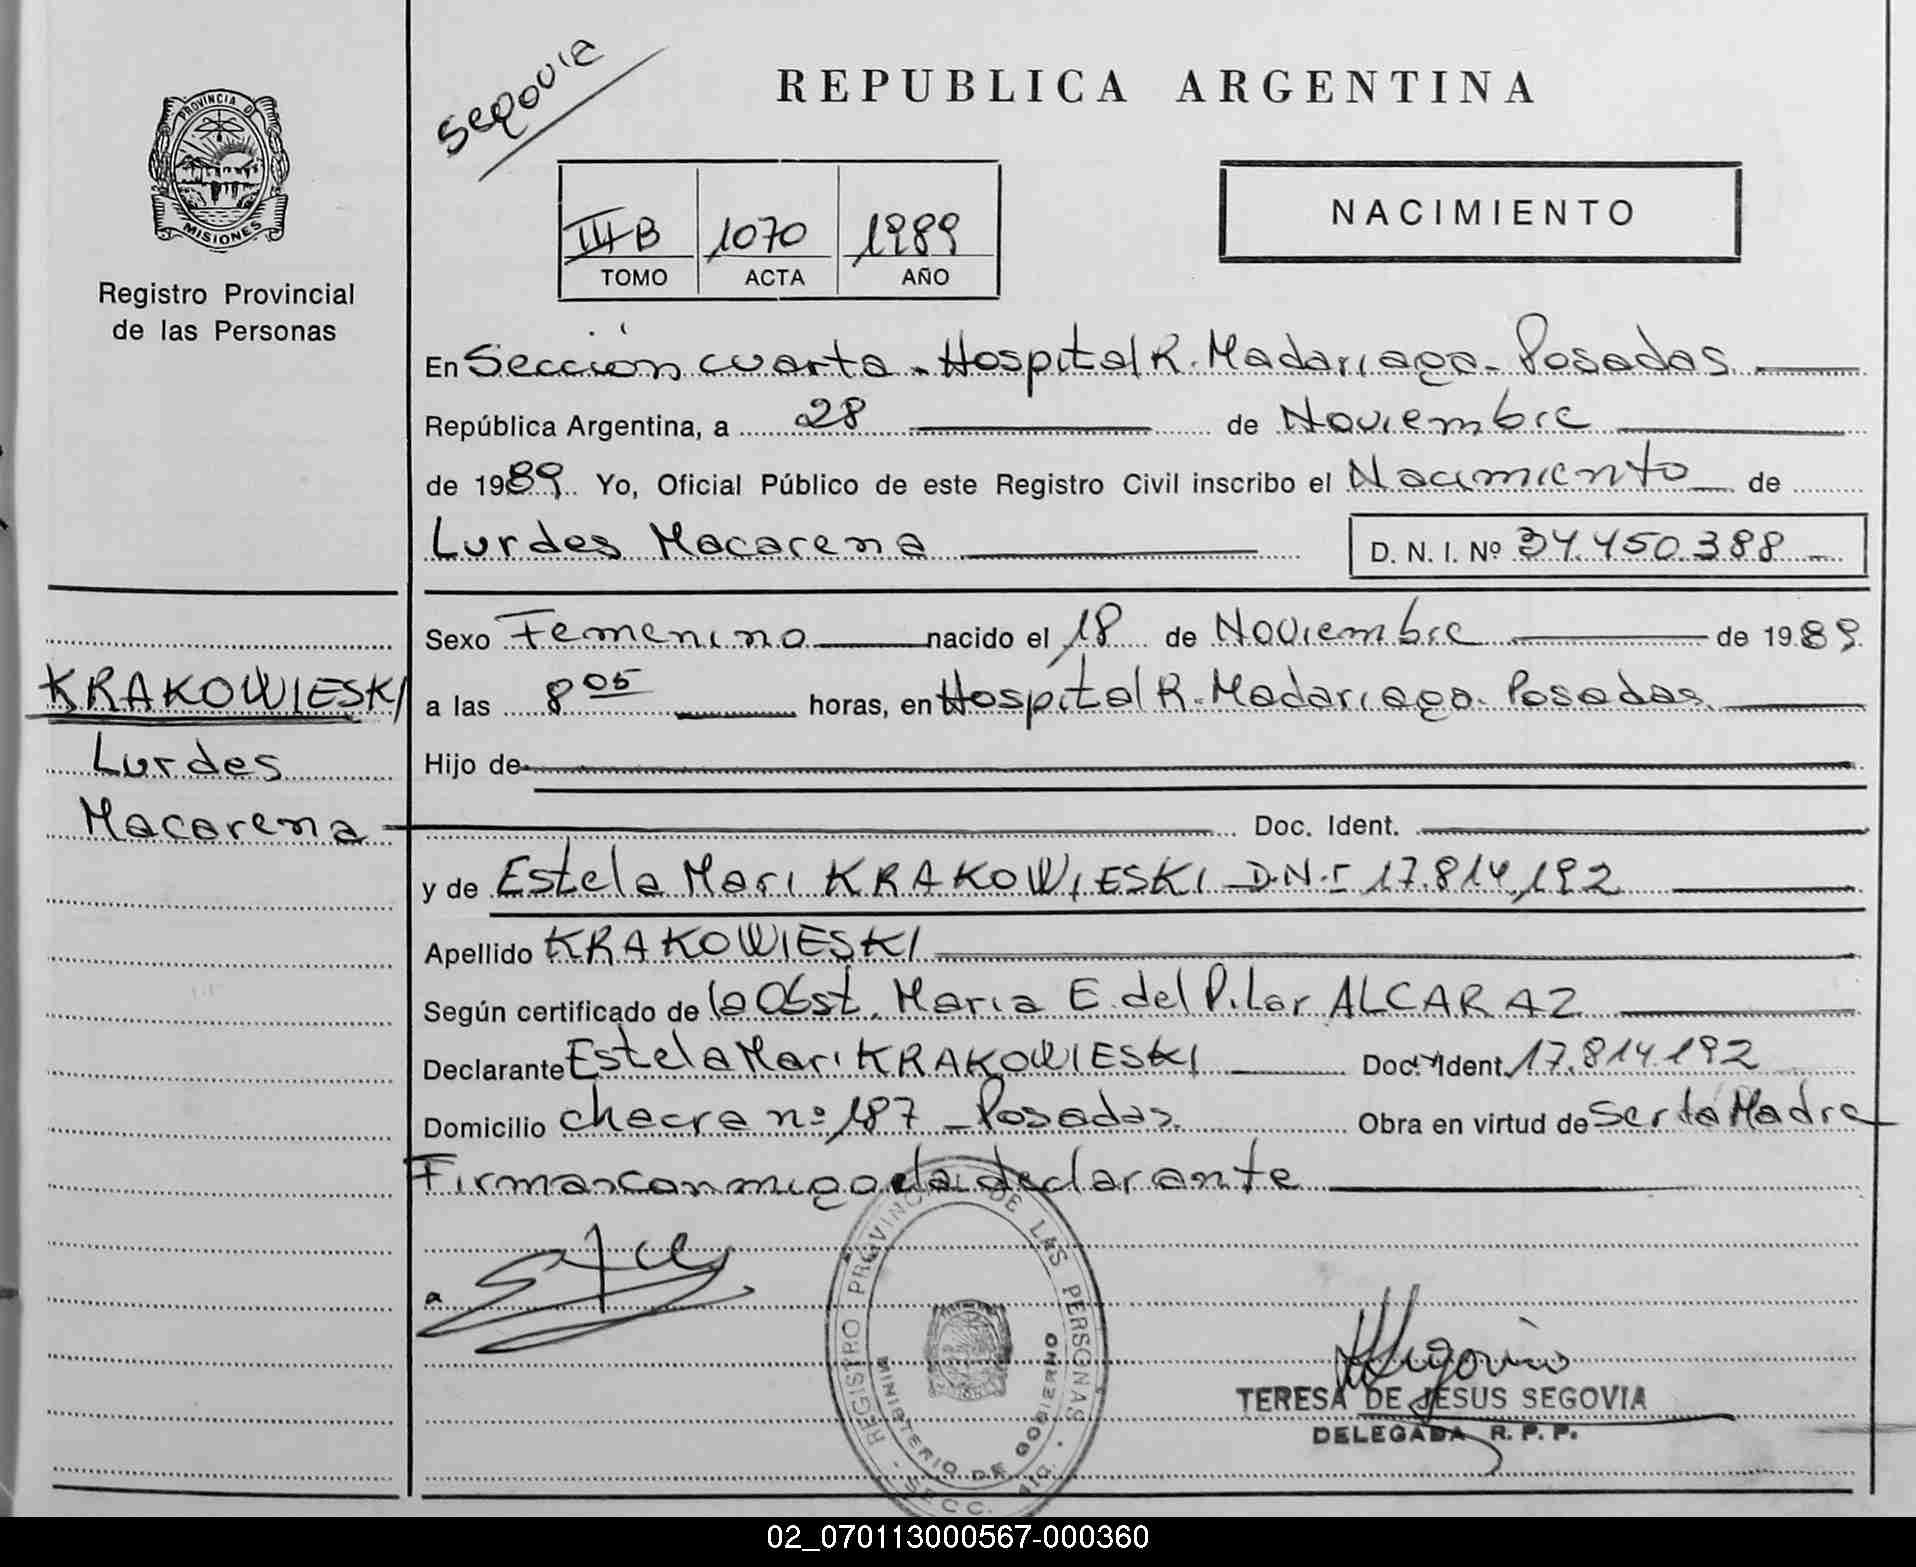 PROVINCIA D
MISIONES
Registro Provincial
de las Personas
KRAKOWIESKI
Lurdes
Macarena
Segovia
REPUBLICA ARGENTINA
III B 1070 1989
TOMO ACTA AÑO
NACIMIENTO
En Sección cuarta - Hospital R. Madariaga - Posadas
República Argentina, a 28 de Noviembre
de 1989. Yo, Oficial Público de este Registro Civil inscribo el Nacimiento de
Lurdes Macarena
D. N. I. Nº 34.450.388
Sexo Femenino nacido el 18 de Noviembre de 1989
a las 8 05 horas, en Hospital R. Madariaga. Posadas
Hijo de
Doc. Ident.
y de Estela Mari KRAKOWIESKI D.N.I 17.814.192
Apellido KRAKOWIESKI
Según certificado de la Obst. Maria E. del Pilar ALCARAZ
Declarante Estela Mari KRAKOWIESKI Doc. Ident. 17.814.192
Domicilio chacra nº 187 - Posadas. Obra en virtud de Ser la Madre
Firman conmigo la declarante
REGISTRO PROVINC DE LAS PERSONAS
MINISTERIO DE GOBIERNO
SECC.
Segovia
TERESA DE JESUS SEGOVIA
DELEGADA R. P. P.
02_070113000567-000360